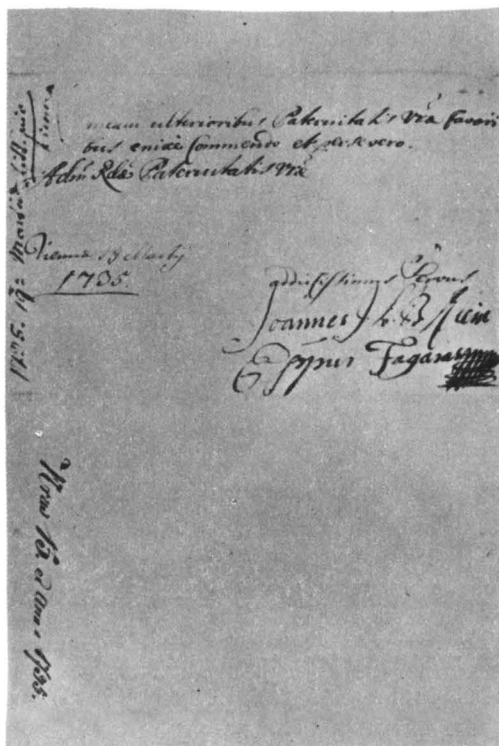 meam ulterioribus Paternitatis Vrae favori
bus enixe Commendo et persevero.
Adm Rdae Paternitatis Vrae
Viennae 13 Martij
1735.
addictissimus Servus
Joannes L. B. Klein
Eppus Fagaras
1735. 19 Martij
Vienna
ex Anno 1735.